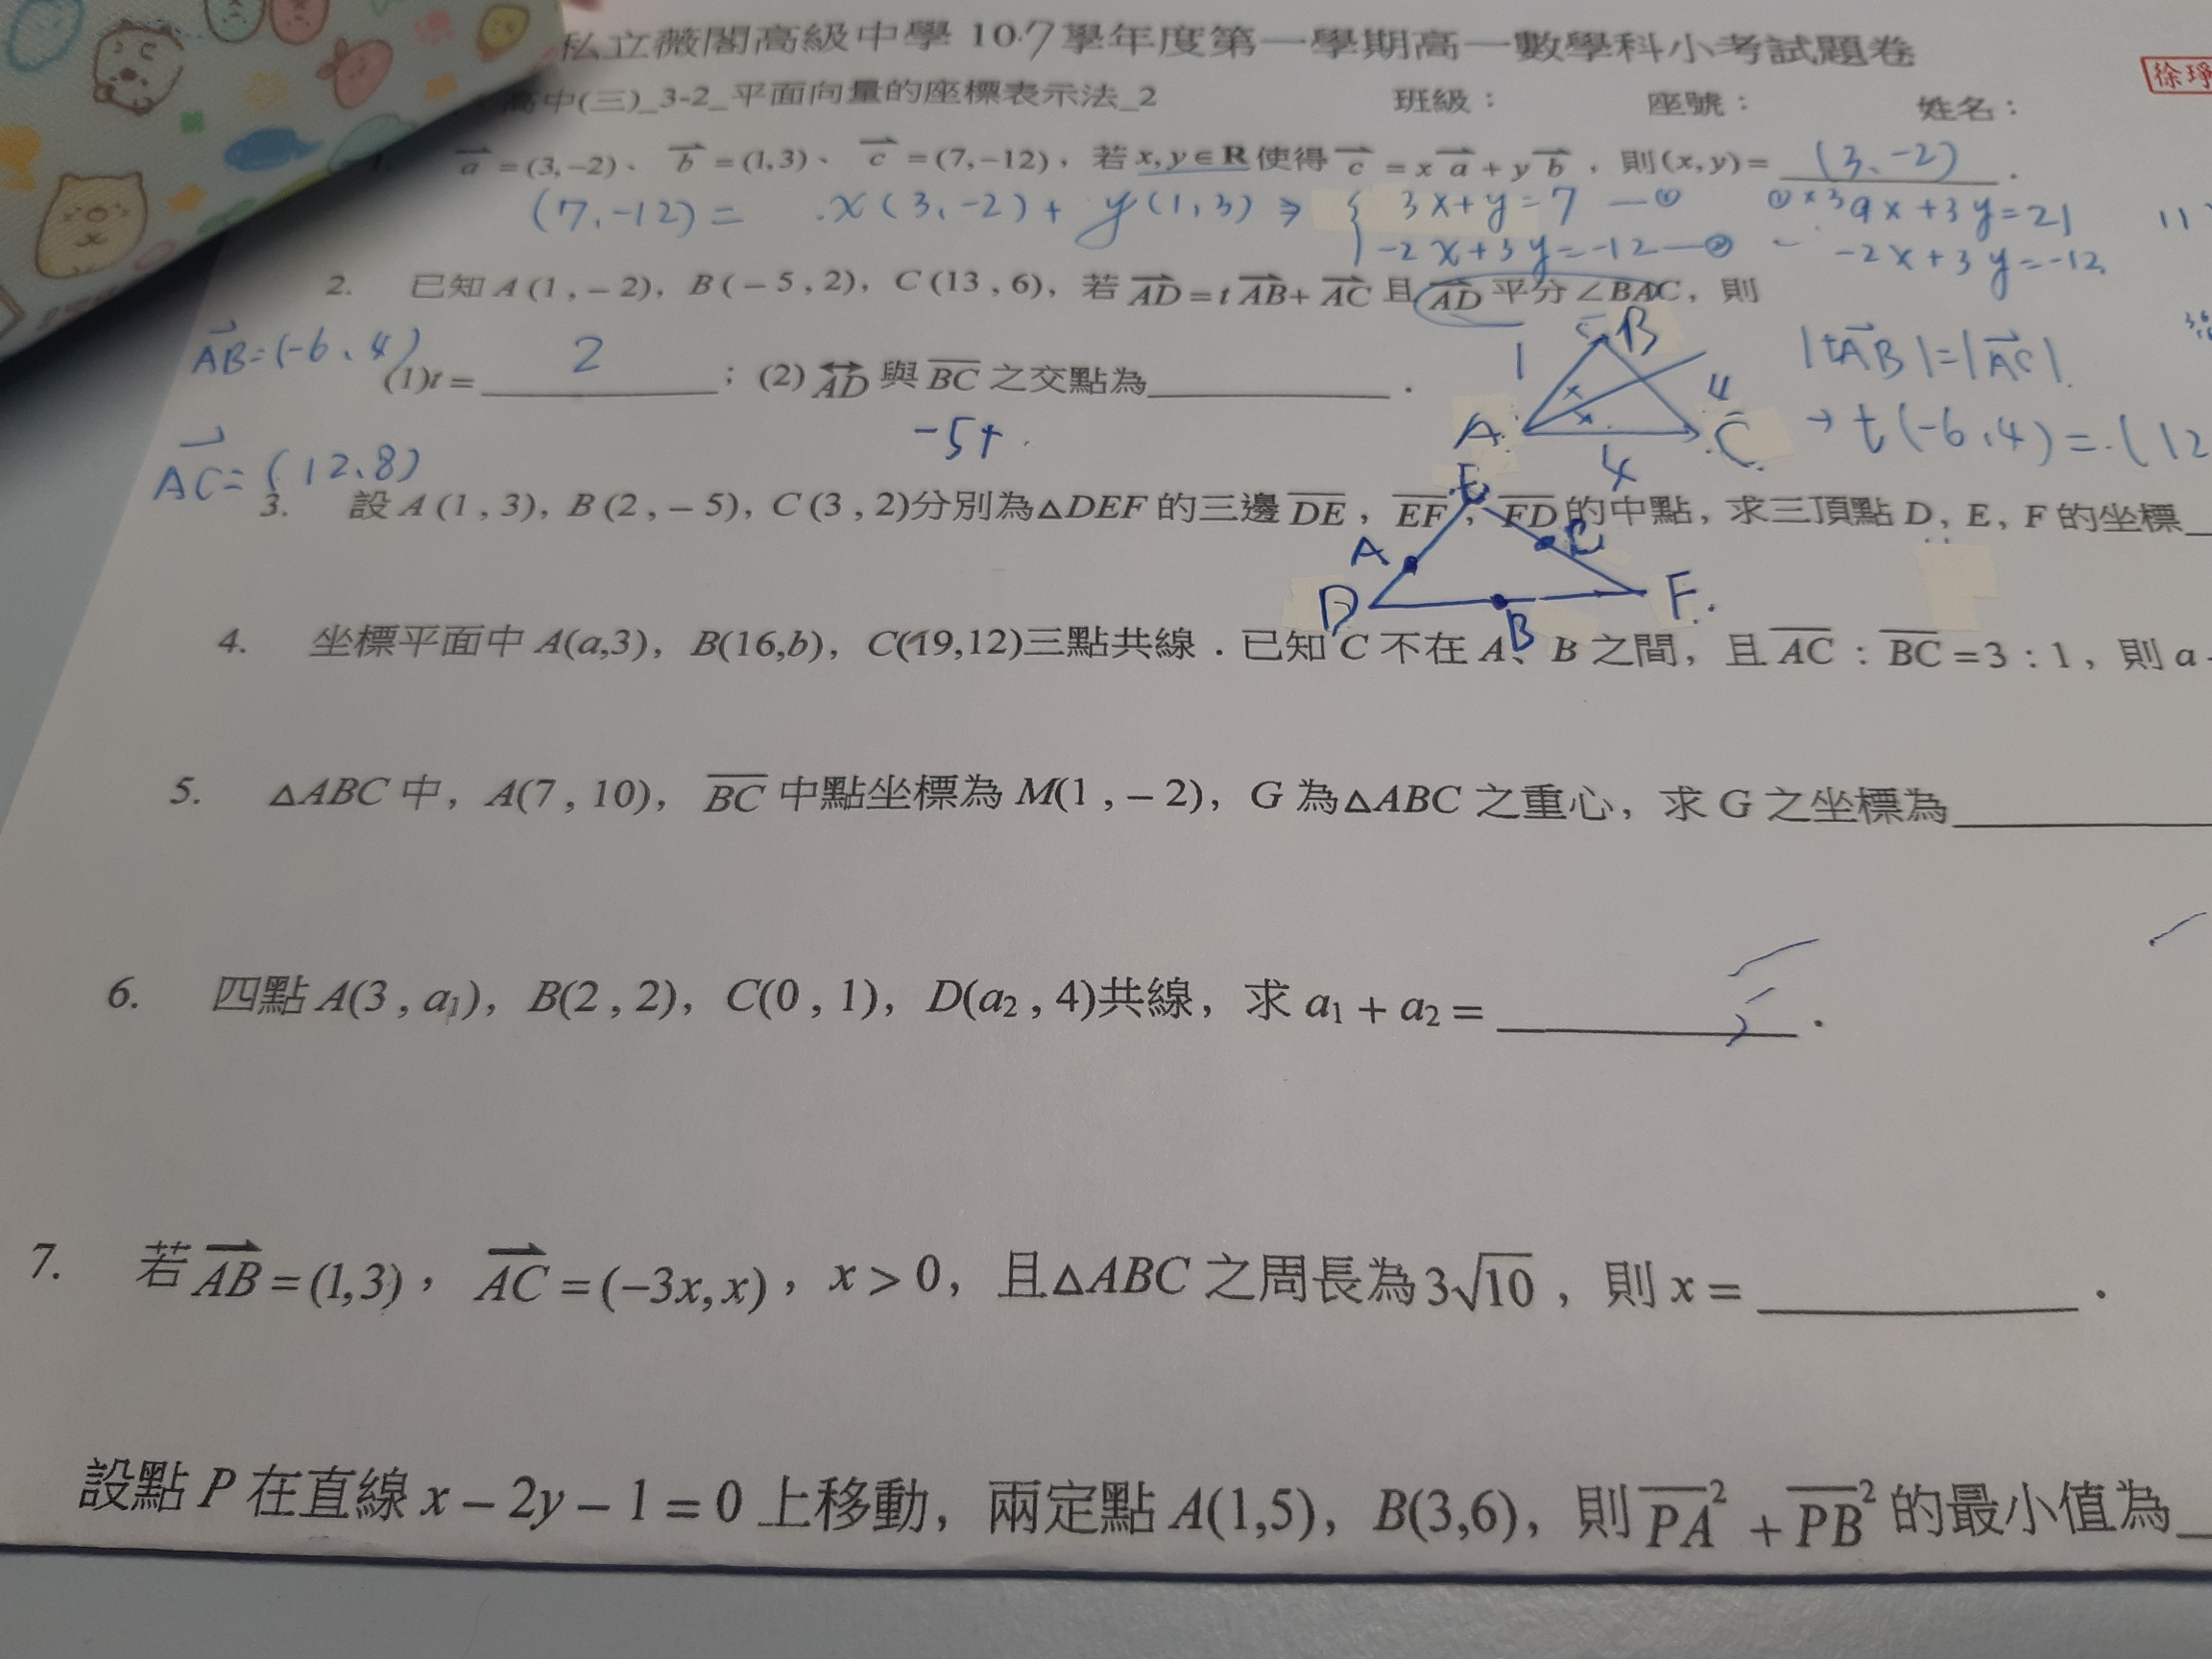 私立薇閣高級中學 107學年度第一學期高一數學科小考試題卷
徐
高中(三)_3-2_平面向量的座標表示法_2 班級： 座號： 姓名：
1. a = (3,-2)、 b = (1,3)、 c = (7,-12)，若 x, y ∈ R 使得 c = x a + y b ，則 (x, y) = (3、-2) .
(7、-12) = x(3、-2) + y(1、3) ⇒ { 3x+y=7 —① ①×3 9x+3y=21 11
-2x+3y=-12 —② - -2x+3y=-12
2. 已知 A (1 , – 2)，B ( – 5 , 2)，C (13 , 6)，若 AD = t AB + AC 且 AD 平分 ∠BAC，則
AB=(-6、4)
(1)t = 2 ；(2) AD 與 BC 之交點為 .
1 B 4 A C 4
|tAB|=|AC|
-5+
→ t(-6、4)=(12
AC=(12、8)
3. 設 A (1 , 3)，B (2 , – 5)，C (3 , 2)分別為△DEF 的三邊 DE，EF，FD 的中點，求三頂點 D，E，F 的坐標
E A C D B F.
4. 坐標平面中 A(a,3)，B(16,b)，C(19,12)三點共線．已知 C 不在 A、B 之間，且 AC：BC = 3：1，則 a
5. △ABC 中，A(7 , 10)，BC 中點坐標為 M(1 , – 2)，G 為△ABC 之重心，求 G 之坐標為
6. 四點 A(3 , a₁)，B(2 , 2)，C(0 , 1)，D(a₂ , 4)共線，求 a₁ + a₂ = .
7. 若 AB = (1,3)，AC = (−3x, x)，x > 0，且△ABC 之周長為 3√10，則 x = .
設點 P 在直線 x – 2y – 1 = 0 上移動，兩定點 A(1,5)，B(3,6)，則 PA² + PB² 的最小值為